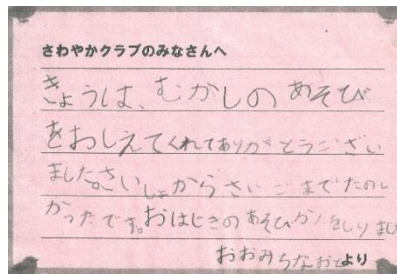 さわやかクラブのみなさんへ
きょうは、むかしのあそび
をおしえてくれてありがとうござい
ました。さいしょからさいごまでたのし
かったです。おはじきのあそびかたをしりまし
おおみちなおとより